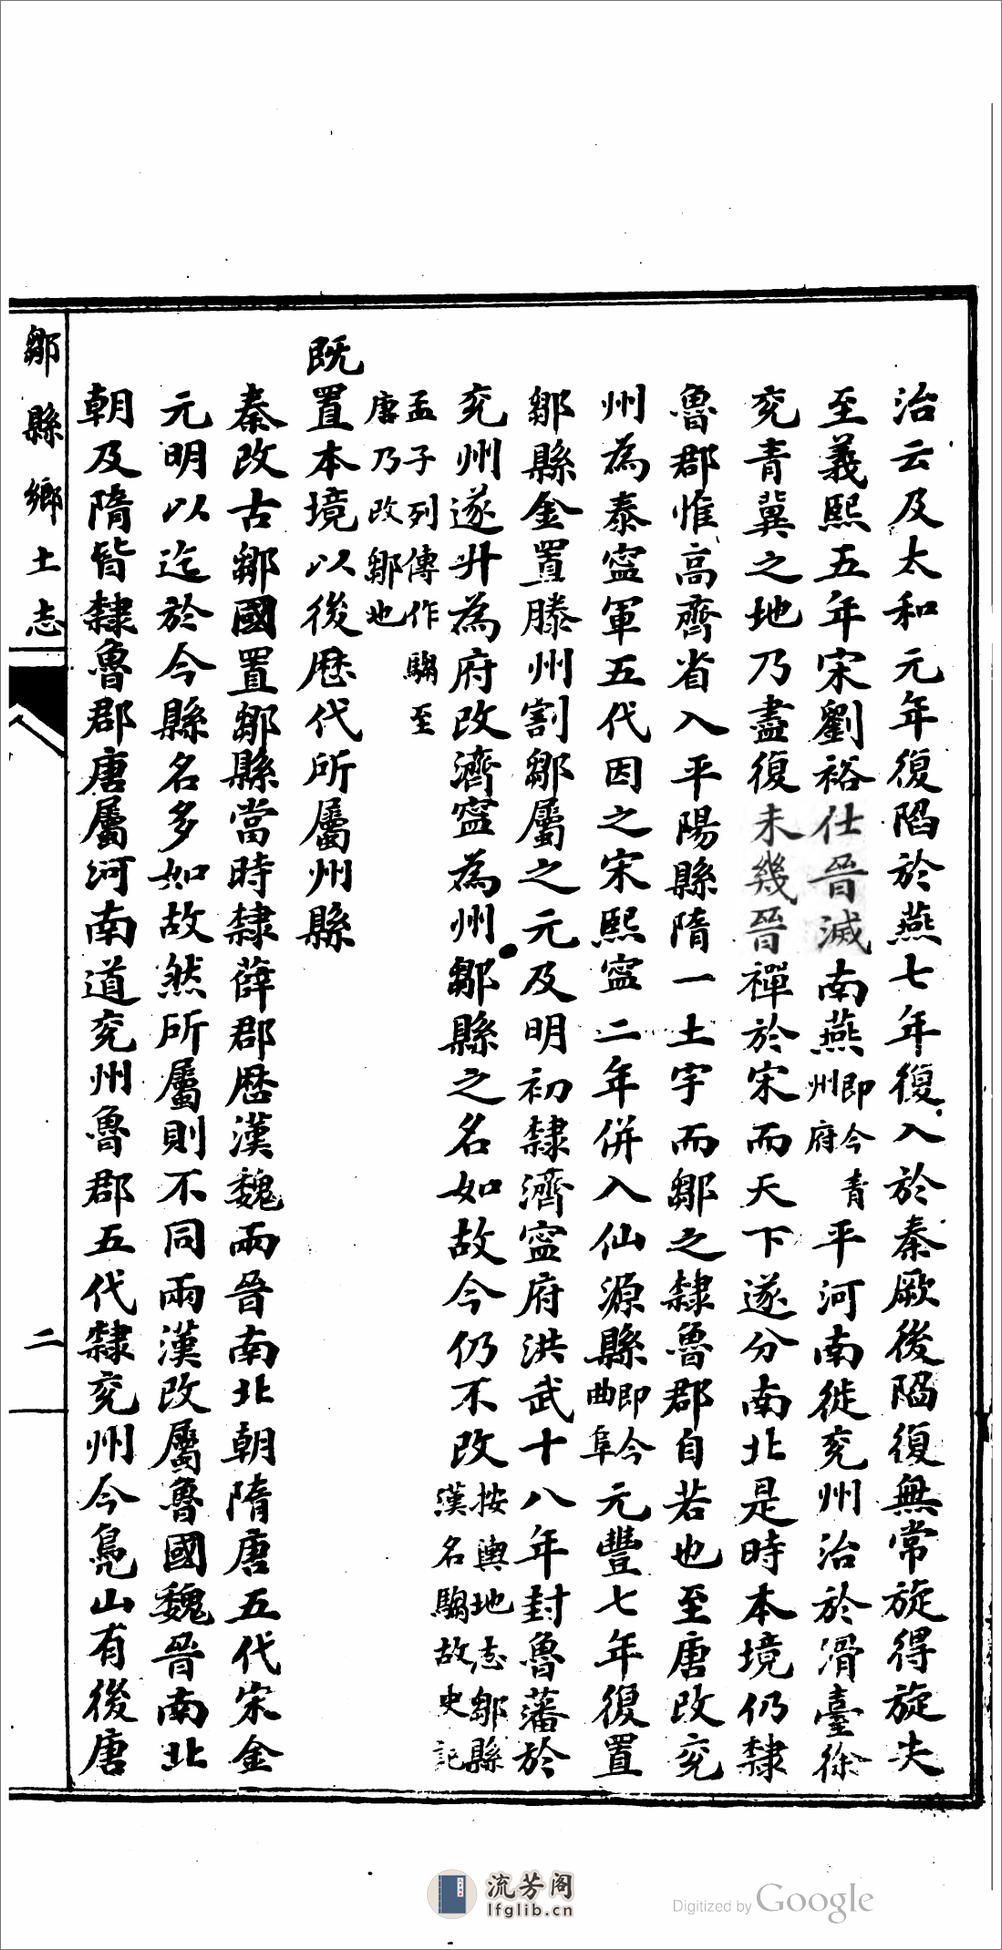 治云及太和元年復陷於燕七年復入於秦厥後陷復無常旋得旋失
至義熙五年宋劉裕仕晉滅南燕即今青州府平河南徙兖州治於滑臺徐
兖青冀之地乃盡復未幾晉禪於宋而天下遂分南北是時本境仍隸
魯郡惟高齊省入平陽縣隋一土宇而鄒之隸魯郡自若也至唐改兖
州為泰寧軍五代因之宋熙寧二年併入仙源縣即今曲阜元豐七年復置
鄒縣金置滕州割鄒屬之元及明初隸濟寧府洪武十八年封魯藩於
兖州遂升為府改濟寧為州鄒縣之名如故今仍不改按輿地志鄒縣漢名騶故史記
孟子列傳作騶至唐乃改鄒也
既置本境以後歷代所屬州縣
秦改古鄒國置鄒縣當時隸薛郡歷漢魏兩晉南北朝隋唐五代宋金
元明以迄於今縣名多如故然所屬則不同兩漢改屬魯國魏晉南北
朝及隋皆隸魯郡唐屬河南道兖州魯郡五代隸兖州今鳧山有後唐
鄒縣鄉土志
二
流芳阁
lfglib.cn
Digitized by Google